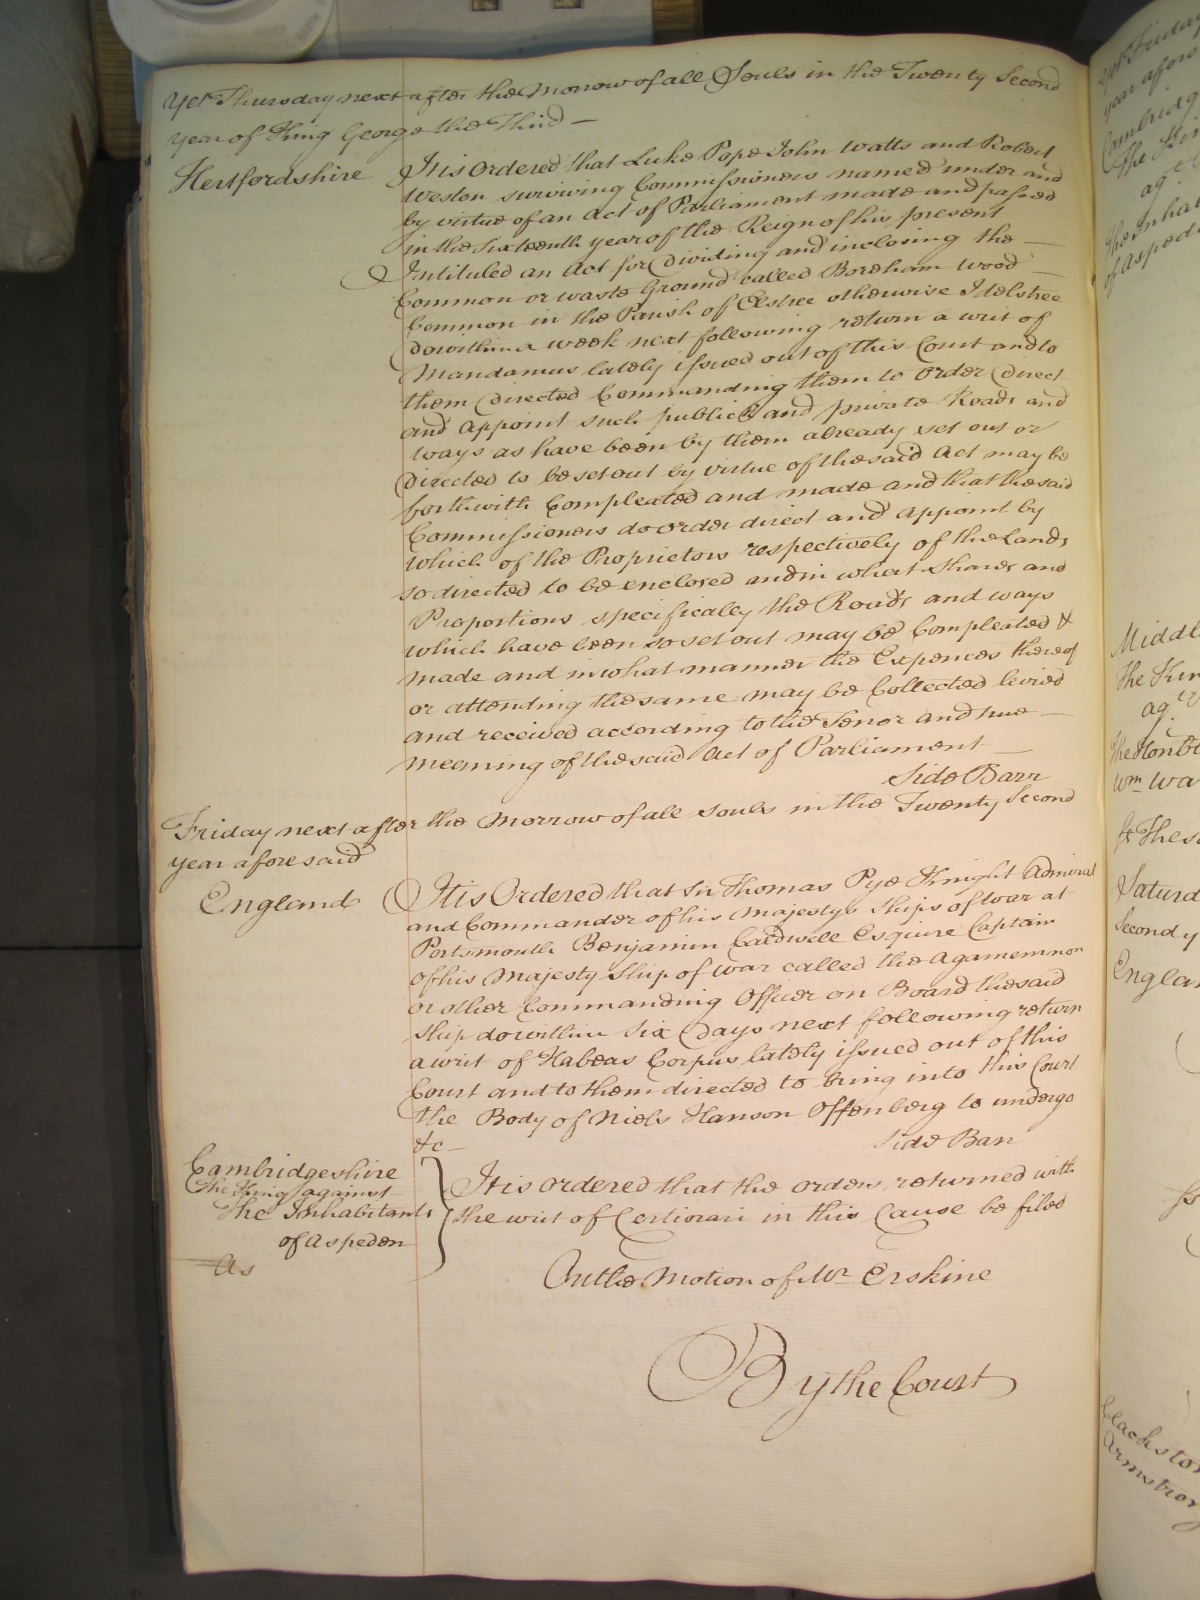 Yet Thursday next after the Morrow of all Souls in the Twenty Second
year of King George the Third —
Hertfordshire It is Ordered that Luke Pope John Watts and Robert
Weston surviving Commissioners named under and
by virtue of an Act of Parliament made and passed
in the Sixteenth year of the Reign of his present
Intituled an Act for Dividing and inclosing the —
Common or waste Ground called Boreham Wood —
Common in the Parish of Elstree otherwise Idelstree
do within a week next following return a writ of
Mandamus lately issued out of this Court and to
them directed Commanding them to Order Direct
and Appoint such publick and private Roads and
ways as have been by them already set out or
Directed to be set out by virtue of the said Act may be
forthwith Compleated and made and that the said
Commissioners do order direct and appoint by
which of the Proprietors respectively of the Lands
so directed to be enclosed and in what Shares and
Proportions specifically the Roads and ways
which have been so set out may be Compleated &
made and in what manner the Expences thereof
or attending the same may be Collected levied
and received according to the Tenor and true —
meaning of the said Act of Parliament —
Side Barr
Friday next after the Morrow of all Souls in the Twenty Second
year aforesaid
England It is Ordered that Sir Thomas Pye Knight Admiral
and Commander of his Majestys Ships of War at
Portsmouth Benjamin Caldwell Esquire Captain
of his Majesty Ship of war called the Agamemnon
or other Commanding Officer on Board the said
Ship do within Six Days next following return
a writ of Habeas Corpus lately issued out of this
Court and to them directed to bring into this Court
the Body of Niels Hanson Offenberg to undergo
&c —
Side Barr
Cambridgeshire
The King against
The Inhabitants
of Aspeden
As
It is Ordered that the orders returned with
the writ of Certiorari in this Cause be filed
On the Motion of Mr Erskine
By the Court
Middl
The Kin
ag.
The Honble
Wm Wa
Saturd
Second y
Englan
Blacksto
Armstron